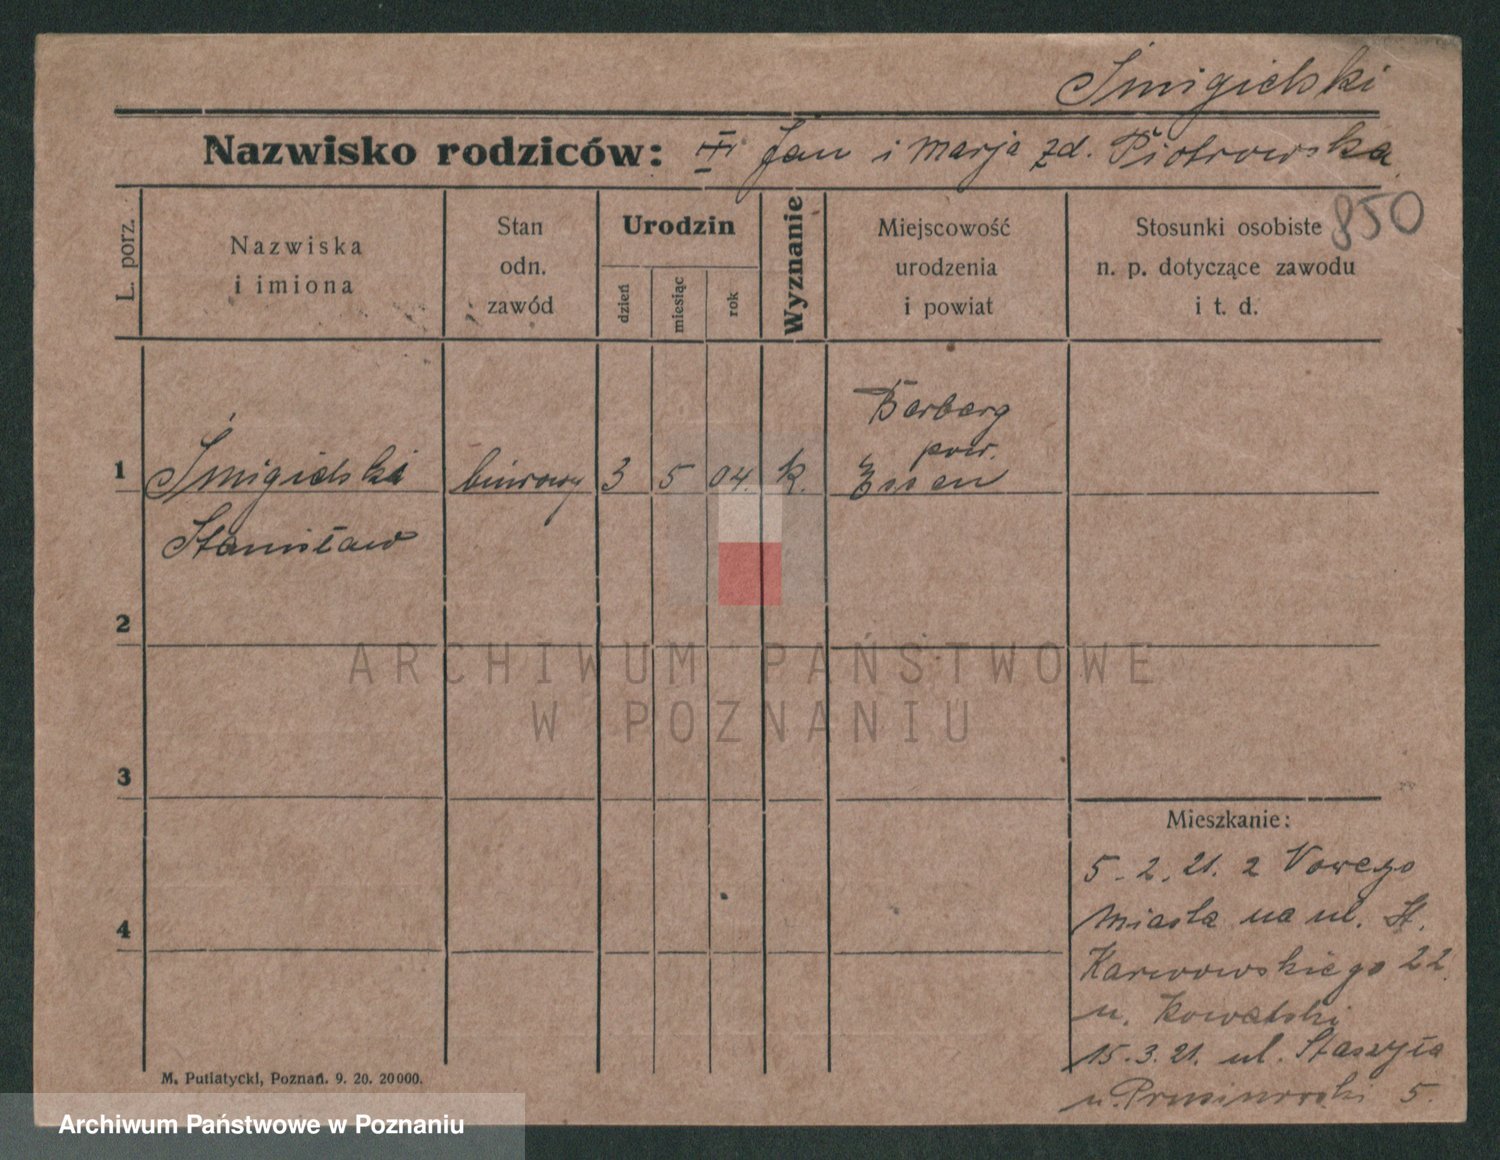 Śmigielski
Nazwisko rodziców: III Jan i Marja zd. Piotrowska
850
L. porz.
Nazwiska
i imiona
Stan
odn.
zawód
Urodzin
dzień
miesiąc
rok
Wyznanie
Miejscowość
urodzenia
i powiat
Stosunki osobiste
n. p. dotyczące zawodu
i t. d.
1
Śmigielski
Stanisław
biurowy
3
5
04.
k.
Barberg
pow.
Essen
2
3
4
ARCHIWUM PAŃSTWOWE
W POZNANIU
Mieszkanie:
5.2.21. z Nowego
Miasta na ul. St.
Karwowskiego 22
u. Kowalski
15.3.21. ul. Staszyca
u. 5.
M. Putiatycki, Poznań. 9. 20. 20000.
Archiwum Państwowe w Poznaniu